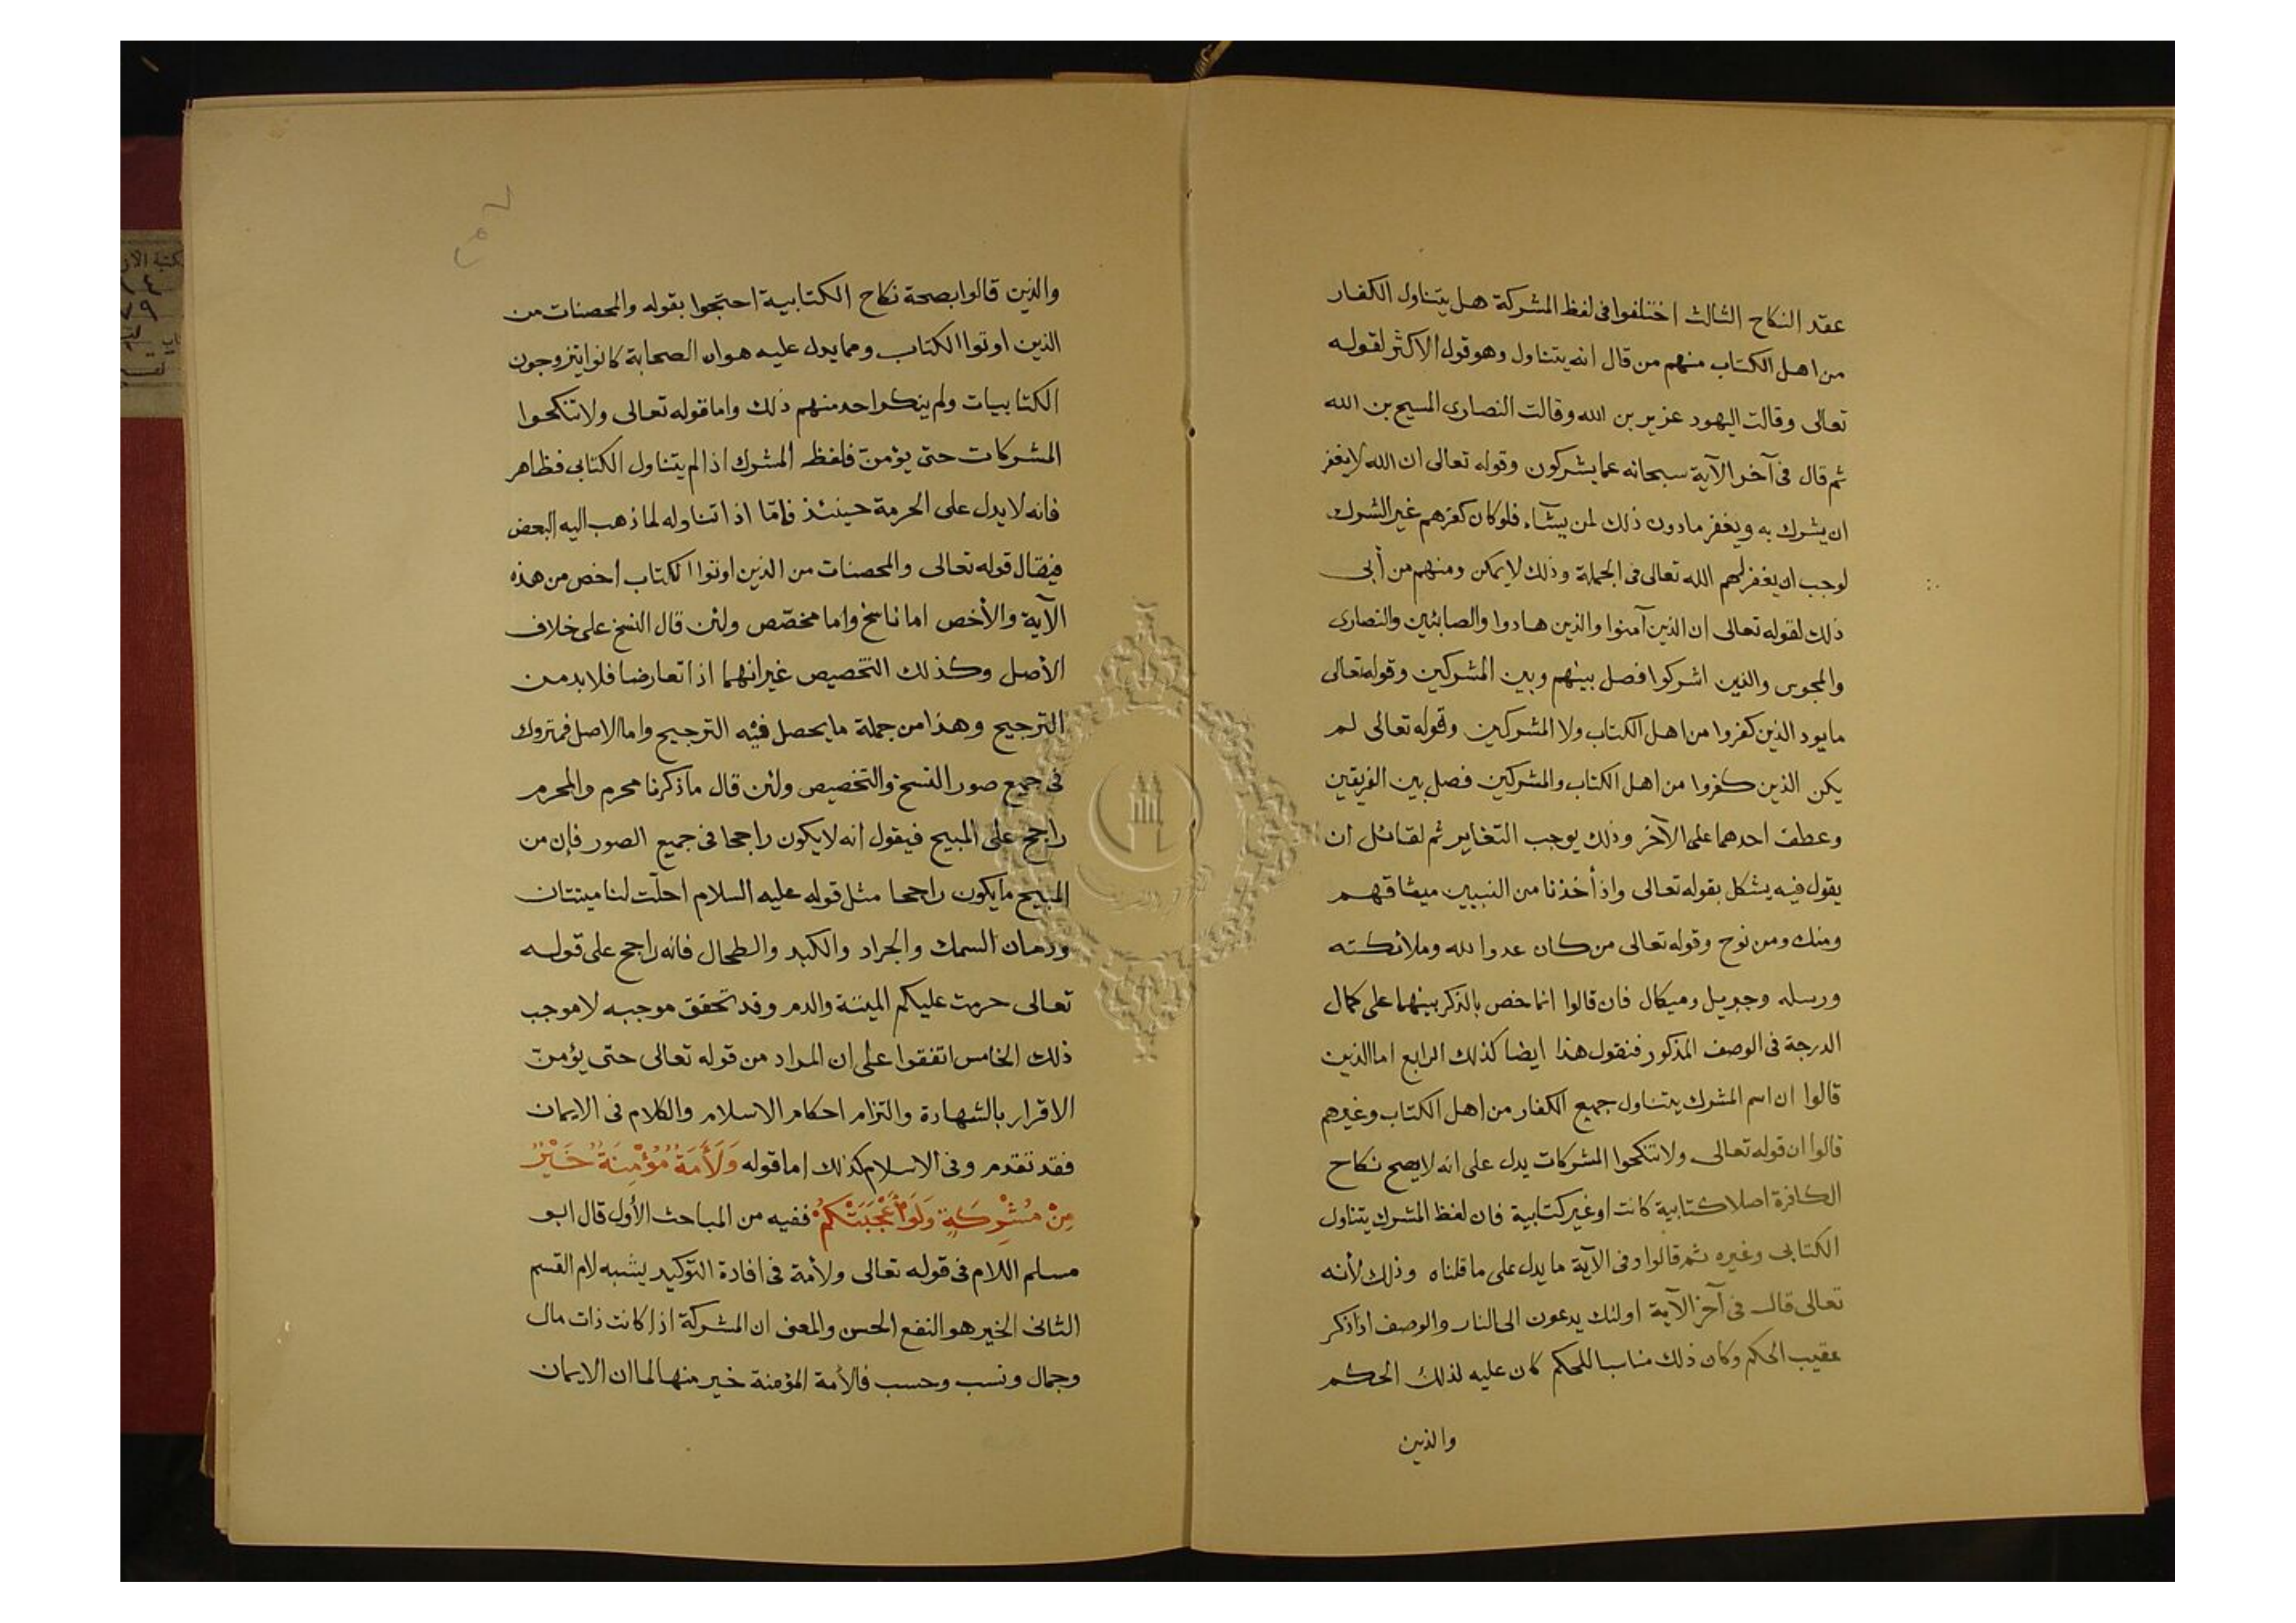 عقد النكاح الثالث اختلفوا فى لفظ المشركة هل يتناول الكفار
من اهل الكتاب منهم من قال انه يتناول وهو قول الاكثر لقوله
تعالى وقالت اليهود عزير بن الله وقالت النصارى المسيح بن الله
ثم قال فى آخر الآية سبحانه عما يشركون وقوله تعالى ان الله لا يغفر
ان يشرك به ويغفر ما دون ذلك لمن يشآء فلو كان كفرهم غير الشرك
لوجب ان يغفر لهم الله تعالى فى الجملة وذلك لا يمكن ومنهم من أبى
ذلك لقوله تعالى ان الذين آمنوا والذين هادوا والصابئين والنصارى
والمجوس والذين اشركوا فصل بينهم وبين المشركين وقوله تعالى
ما يود الذين كفروا من اهل الكتاب ولا المشركين وقوله تعالى لم
يكن الذين كفروا من اهل الكتاب والمشركين فصل بين الفريقين
وعطف احدهما على الآخر وذلك يوجب التغاير ثم لقائل ان
يقول فيه يشكل بقوله تعالى واذ أخذنا من النبيين ميثاقهم
ومنك ومن نوح وقوله تعالى من كان عدوا لله وملائكته
ورسله وجبريل وميكال فان قالوا انما خص بالذكر بينهما على كمال
الدرجة فى الوصف المذكور فنقول هذا ايضا كذلك الرابع اما الذين
قالوا ان اسم المشرك يتناول جميع الكفار من اهل الكتاب وغيرهم
قالوا ان قوله تعالى ولا تنكحوا المشركات يدل على انه لا يصح نكاح
الكافرة اصلا كتابية كانت او غير كتابية فان لفظ المشرك يتناول
الكتابى وغيره ثم قالوا وفى الآية ما يدل على ما قلناه وذلك لأنه
تعالى قال فى آخر الآية اولئك يدعون الى النار والوصف اذا ذكر
عقيب الحكم وكان ذلك مناسبا للحكم كان عليه لذلك الحكم
والذين
والذين قالوا بصحة نكاح الكتابية احتجوا بقوله والمحصنات من
الذين اوتوا الكتاب ومما يدل عليه هو ان الصحابة كانوا يتزوجون
الكتابيات ولم ينكر احد منهم ذلك واما قوله تعالى ولا تنكحوا
المشركات حتى يؤمنّ فلفظ المشرك اذا لم يتناول الكتابى فظاهر
فانه لا يدل على الحرمة حينئذ فإمّا اذا تناوله لما ذهب اليه البعض
فيقال قوله تعالى والمحصنات من الذين اوتوا الكتاب اخص من هذه
الآية والأخص اما ناسخ واما مخصّص ولئن قال النسخ على خلاف
الأصل وكذلك التخصيص غير انهما اذا تعارضا فلا بد من
الترجيح وهذا من جملة ما يحصل فيه الترجيح واما الاصل فمتروك
فى جميع صور النسخ والتخصيص ولئن قال ما ذكرنا محرم والمحرم
راجح على المبيح فيقول انه لا يكون راجحا فى جميع الصور فإن من
المبيح ما يكون راجحا مثل قوله عليه السلام احلّت لنا ميتتان
ودمان السمك والجراد والكبد والطحال فانه راجح على قوله
تعالى حرمت عليكم الميتة والدم وقد تحقق موجبه لا موجب
ذلك الخامس اتفقوا على ان المراد من قوله تعالى حتى يؤمنّ
الاقرار بالشهادة والتزام احكام الاسلام والكلام فى الايمان
فقد تقدم وفى الاسلام كذلك اما قوله وَلَأَمَةٌ مُؤْمِنَةٌ خَيْرٌ
مِنْ مُشْرِكَةٍ وَلَوْ أَعْجَبَتْكُمْ ففيه من المباحث الأول قال ابو
مسلم اللام فى قوله تعالى ولأمة فى افادة التوكيد يشبه لام القسم
الثانى الخير هو النفع الحسن والمعنى ان المشركة اذا كانت ذات مال
وجمال ونسب وحسب فالأمة المؤمنة خير منها لما ان الايمان